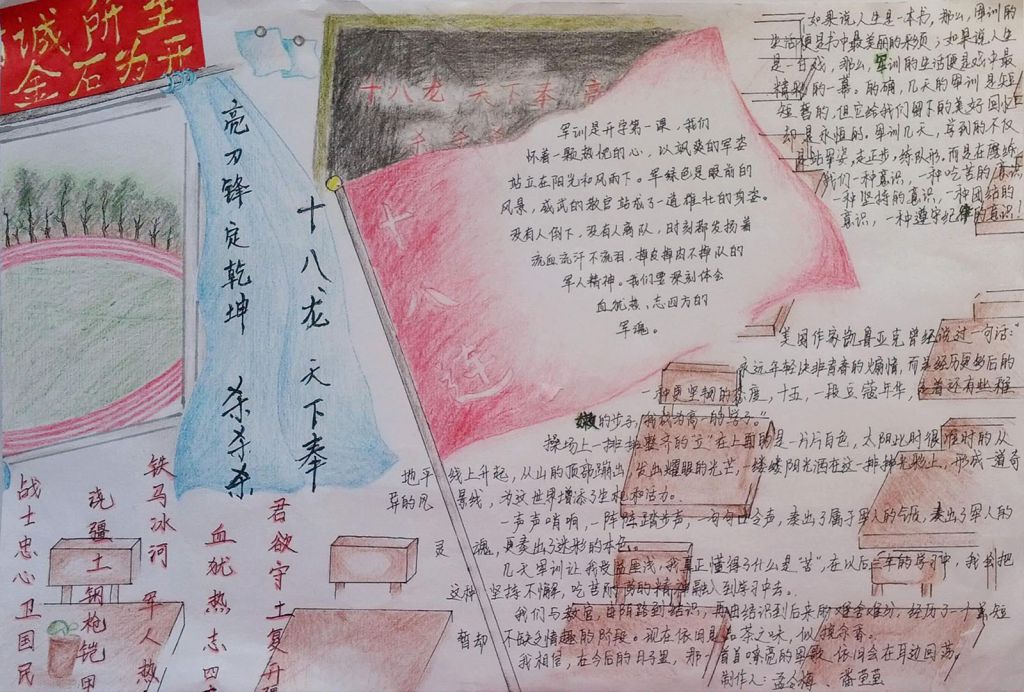 诚所至
金石为开
亮刀锋定乾坤 杀杀杀
十八龙 天下奉
十八龙 天下奉
杀杀
十八连
军训是开学第一课，我们
怀着一颗热忱的心，以飒爽的军姿
站立在阳光和风雨下。军绿色是眼前的
风景，威武的教官站成了一道雄壮的身姿。
没有人倒下，没有人离队，时刻都发扬着
流血流汗不流泪，掉皮掉肉不掉队的
军人精神。我们要深刻体会
血犹热、志四方的
军魂。
如果说人生是一本书，那么，军训的
生活便是书中最美丽的彩页；如果说人生
是一台戏，那么，军训的生活便是戏中最
精彩的一幕。的确，几天的军训是短
短暂的，但它给我们留下的美好回忆
却是永恒的。军训几天，学到的不仅
是站军姿，走正步，练队形，而是在磨练
我们一种意识，一种吃苦的意识
一种坚持的意识，一种团结的
意识，一种遵守纪律的意识！
美国作家凯鲁亚克曾经说过一句话："
永远年轻快非青春的煽情，而是经历更多后的
一种更坚韧的态度，十五，一段豆蔻年华，含着还有些稚
嫩的步子，我成为高一的学子。"
操场上一排排整齐的"立"在上面的是一片片白色，太阳此时很准时的从
地平线上升起，从山的顶部蹦出，发出耀眼的光芒，一缕缕阳光洒在这一排排光艳上，形成一道奇
异的风景线，为这世界增添了生机和活力。
一声声哨响，一阵阵踏步声，一句句口令声，表出了属于军人的气质，表出了军人的
灵魂，更表出了迷彩的本色。
几天军训让我受益匪浅，我真正懂得了什么是"苦"，在以后三年的学习中，我会把
这种坚持不懈，吃苦耐劳的精神融入到学习中去。
我们与教官，由陌路到结识，再由结识到后来的难舍难分，经历了一个虽短
暂却不缺乏情趣的阶段。现在依旧是如茶之味，似
我相信，在今后的日子里，那一首首嘹亮的军歌依旧会在耳边回荡。
制作人：孟令梅 潘萱萱
铁马冰河 军人热
浇疆土 钢枪铠甲
战士忠心卫国民
血犹热志四方
君欲守土复开疆